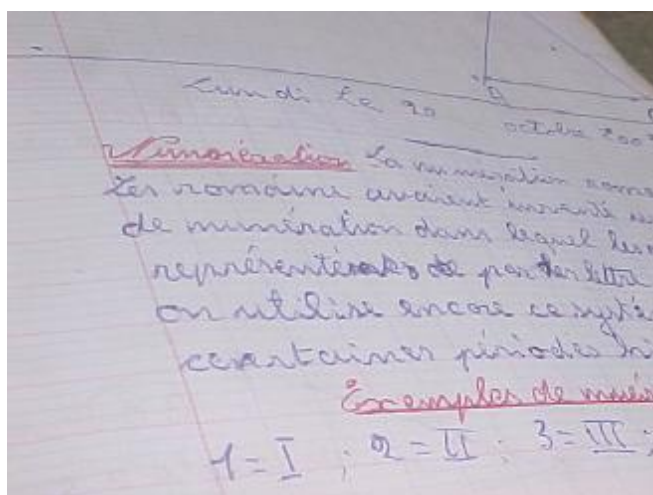 A
Lundi Le 20 octobre 200
Numération La numération roma
Les romains avaient inventé u
de numération dans lequel les
représentées de par des lettre
on utilise encore ce systè
certaines périodes hi
Exemples de
1 = I ; 2 = II ; 3 = III ;